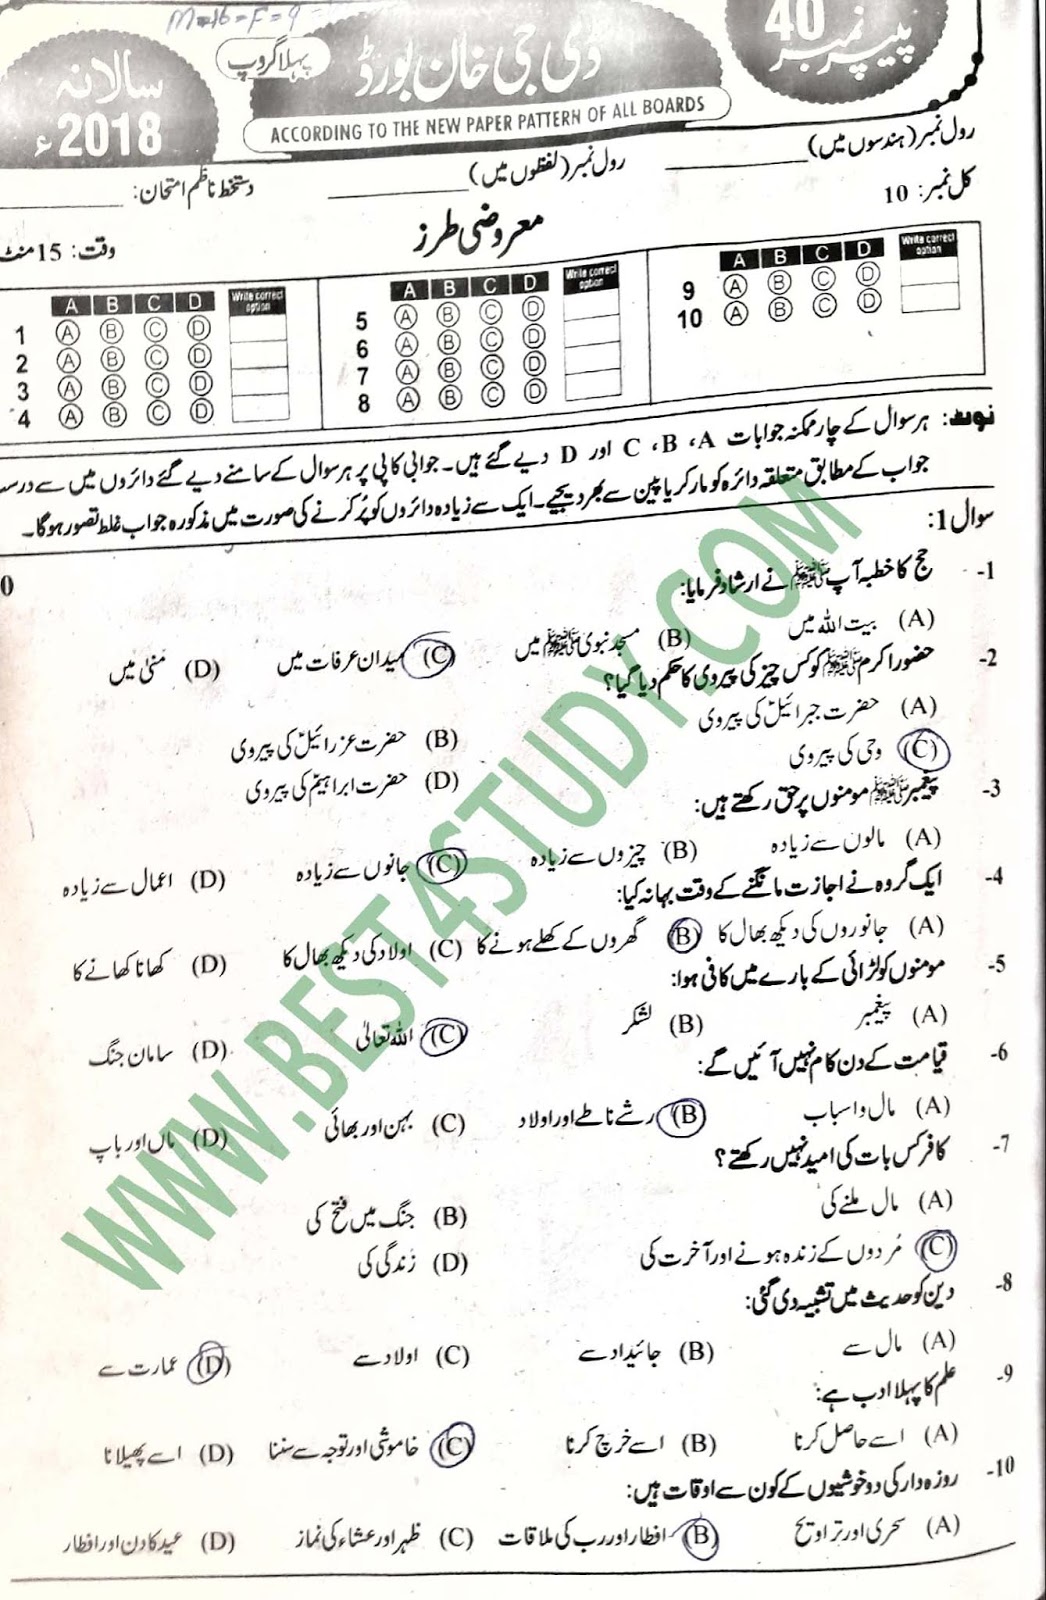 M=16=F=9
پیپر نمبر 40
ڈی جی خان بورڈ
پہلا گروپ
سالانہ 2018ء
ACCORDING TO THE NEW PAPER PATTERN OF ALL BOARDS
رول نمبر (ہندسوں میں) رول نمبر (لفظوں میں) دستخط ناظم امتحان:
کل نمبر: 10 معروضی طرز وقت: 15 منٹ
A B C D Write correct option
1 A B C D
2 A B C D
3 A B C D
4 A B C D
A B C D Write correct option
5 A B C D
6 A B C D
7 A B C D
8 A B C D
A B C D Write correct option
9 A B C D
10 A B C D
نوٹ: ہر سوال کے چار ممکنہ جوابات A، B، C اور D دیے گئے ہیں۔ جوابی کاپی پر ہر سوال کے سامنے دیے گئے دائروں میں سے درست
جواب کے مطابق متعلقہ دائرہ کو مارکر یا پین سے بھر دیجیے۔ ایک سے زیادہ دائروں کو پُر کرنے کی صورت میں مذکورہ جواب غلط تصور ہوگا۔
سوال 1:
0
1- حج کا خطبہ آپ ﷺ نے ارشاد فرمایا:
(A) بیت اللہ میں (B) مسجد نبوی ﷺ میں (C) میدان عرفات میں (D) منیٰ میں
2- حضور اکرم ﷺ کو کس چیز کی پیروی کا حکم دیا گیا؟
(A) حضرت جبرائیلؑ کی پیروی (B) حضرت عزرائیلؑ کی پیروی
(C) وحی کی پیروی (D) حضرت ابراہیمؑ کی پیروی
3- پیغمبر ﷺ مومنوں پر حق رکھتے ہیں:
(A) مالوں سے زیادہ (B) چیزوں سے زیادہ (C) جانوں سے زیادہ (D) اعمال سے زیادہ
4- ایک گروہ نے اجازت مانگنے کے وقت بہانہ کیا:
(A) جانوروں کی دیکھ بھال کا (B) گھروں کے کھلے ہونے کا (C) اولاد کی دیکھ بھال کا (D) کھانا کھانے کا
5- مومنوں کو لڑائی کے بارے میں کافی ہوا:
(A) پیغمبر (B) لشکر (C) اللہ تعالیٰ (D) سامان جنگ
6- قیامت کے دن کام نہیں آئیں گے:
(A) مال و اسباب (B) رشتے ناطے اور اولاد (C) بہن اور بھائی (D) ماں اور باپ
7- کافر کس بات کی امید نہیں رکھتے؟
(A) مال ملنے کی (B) جنگ میں فتح کی
(C) مُردوں کے زندہ ہونے اور آخرت کی (D) زندگی کی
8- دین کو حدیث میں تشبیہ دی گئی:
(A) مال سے (B) جائیداد سے (C) اولاد سے (D) عمارت سے
9- علم کا پہلا ادب ہے:
(A) اسے حاصل کرنا (B) اسے خرچ کرنا (C) خاموشی اور توجہ سے سننا (D) اسے پھیلانا
10- روزہ دار کی دو خوشیوں کے کون سے اوقات ہیں:
(A) سحری اور تراویح (B) افطار اور رب کی ملاقات (C) ظہر اور عشاء کی نماز (D) عید کا دن اور افطار
WWW.BEST4STUDY.COM